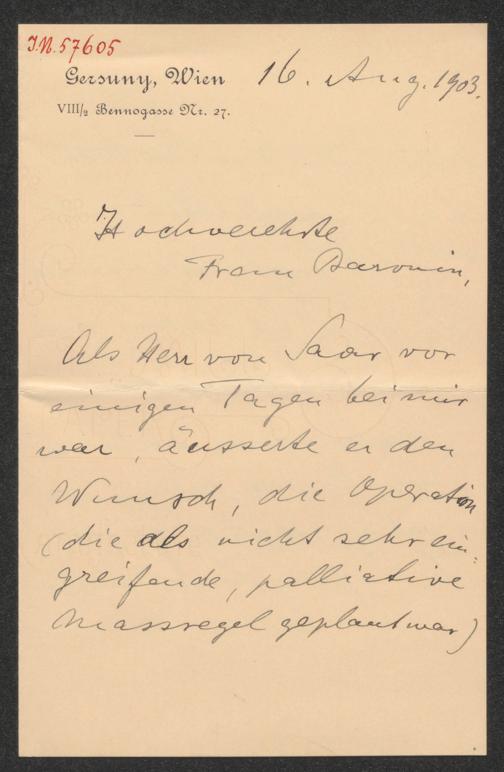 I.N. 57605
Gersuny, Wien
16. Aug. 1903.
VIII/2 Bennogasse Nr. 27.
Hochverehrte
Frau Baronin,
Als Herr von Saar vor
einigen Tagen bei mir
war, äusserte er den
Wunsch, die Operation
(die als nicht sehr ein-
greifende, palliative
Massregel geplant war)